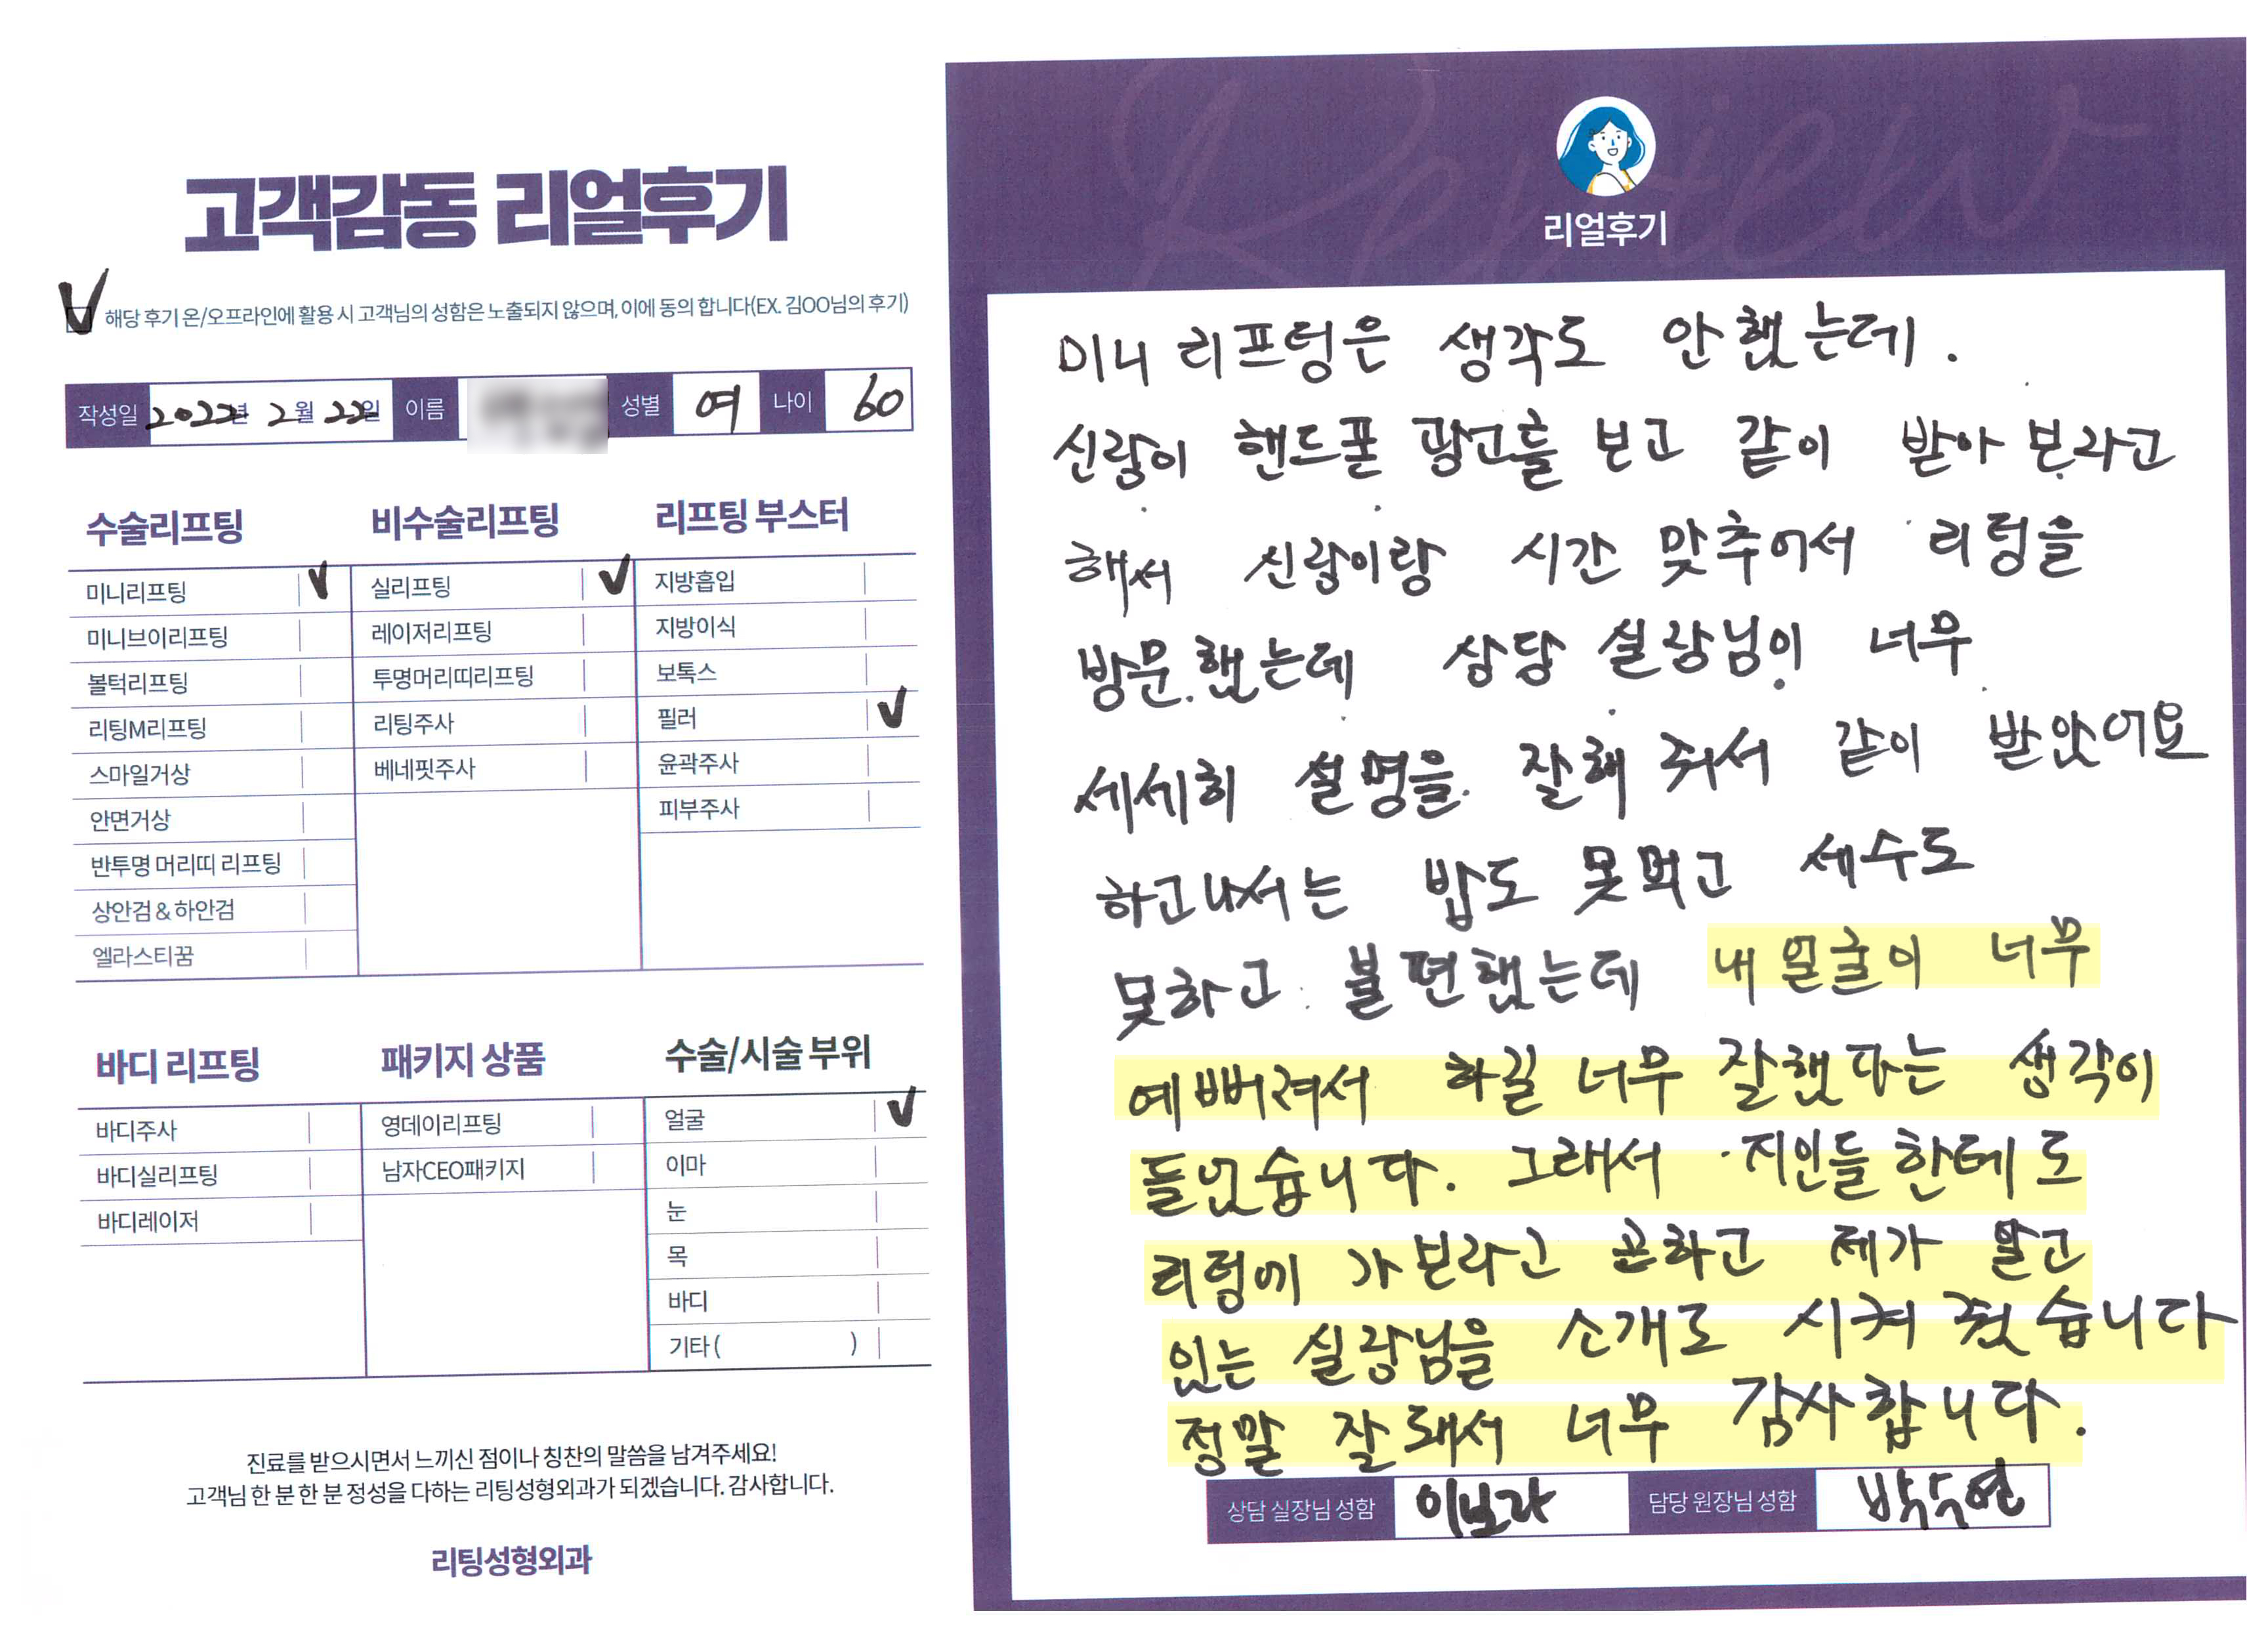 고객감동 리얼후기
해당 후기 온/오프라인에 활용 시 고객님의 성함은 노출되지 않으며, 이에 동의 합니다(EX. 김OO님의 후기)
작성일 2022년 2월 22일 이름 성별 여 나이 60
수술리프팅
미니리프팅 ✓
미니브이리프팅
볼턱리프팅
리팅M리프팅
스마일거상
안면거상
반투명 머리띠 리프팅
상안검 & 하안검
엘라스티꿈
비수술리프팅
실리프팅 ✓
레이저리프팅
투명머리띠리프팅
리팅주사
베네핏주사
리프팅 부스터
지방흡입
지방이식
보톡스
필러 ✓
윤곽주사
피부주사
바디 리프팅
바디주사
바디실리프팅
바디레이저
패키지 상품
영데이리프팅
남자CEO패키지
수술/시술 부위
얼굴 ✓
이마
눈
목
바디
기타 ( )
진료를 받으시면서 느끼신 점이나 칭찬의 말씀을 남겨주세요!
고객님 한 분 한 분 정성을 다하는 리팅성형외과가 되겠습니다. 감사합니다.
리팅성형외과
Review
리얼후기
미니 리프팅은 생각도 안했는데.
신랑이 핸드폰 광고를 보고 같이 받아 보라고
해서 신랑이랑 시간 맞추어서 리팅을
방문.했는데 상담 실장님이 너무
세세히 설명을 잘해 줘서 같이 받았어요
하고나서는 밥도 못먹고 세수도
못하고 불편했는데 내 얼굴이 너무
예뻐려서 하길 너무 잘했다는 생각이
들었습니다. 그래서 지인들한테도
리팅에 가보라고 권하고 제가 알고
있는 실장님을 소개도 시켜 줬습니다
정말 잘돼서 너무 감사합니다.
상담 실장님 성함 이보라 담당 원장님 성함 박수연